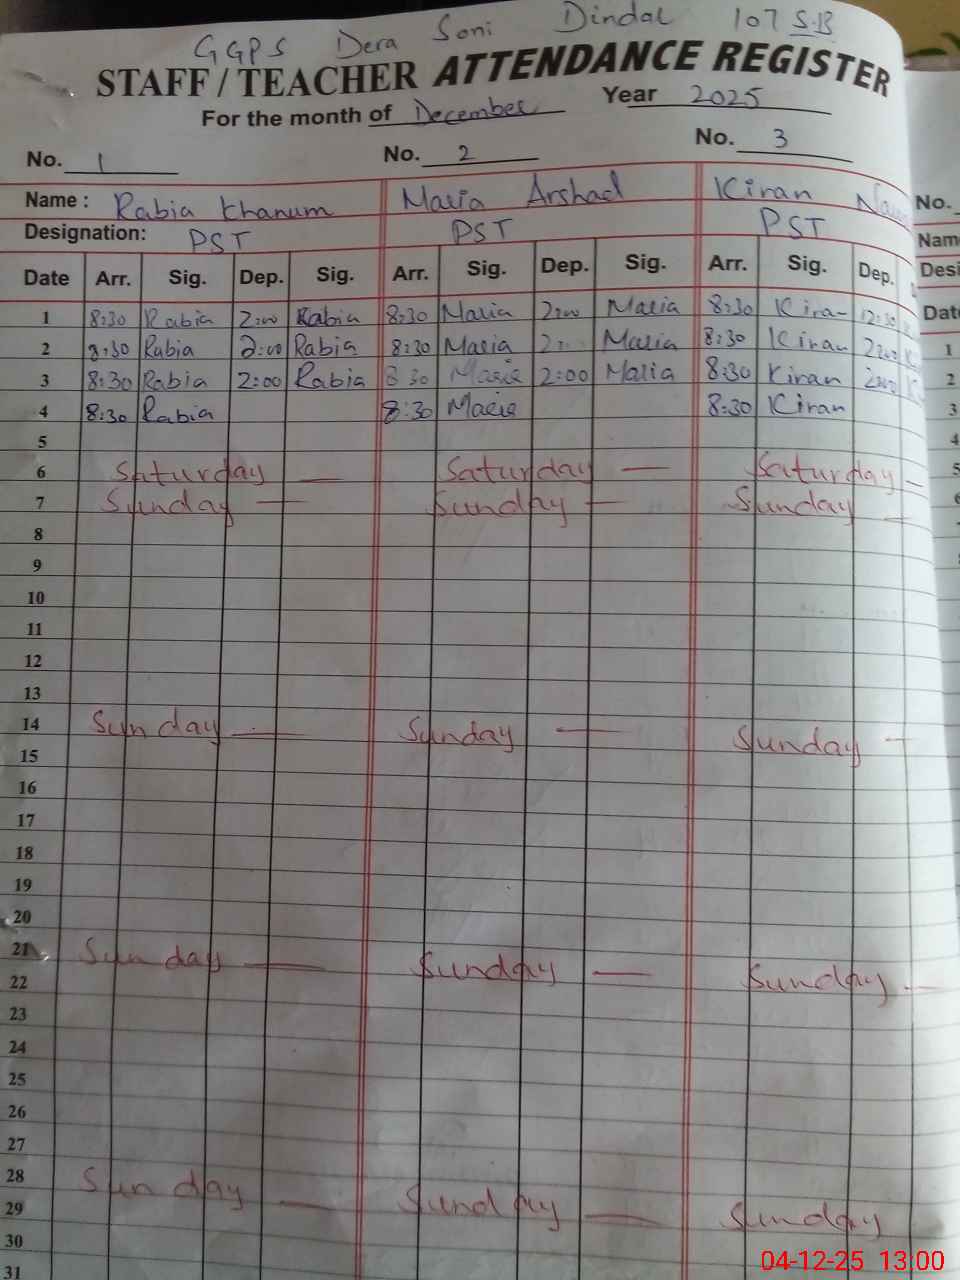 GGPS Dera Soni Dindal 107 S.B
STAFF / TEACHER ATTENDANCE REGISTER
For the month of December Year 2025
No. 1 No. 2 No. 3 No.
Name : Rabia Khanum Maria Arshad Kiran
Designation: PST PST PST
Date Arr. Sig. Dep. Sig. Arr. Sig. Dep. Sig. Arr. Sig. Dep.
1 8:30 Rabia 2:00 Rabia 8:30 Maria 2:00 Maria 8:30 Kiran 12:30
2 8:30 Rabia 2:00 Rabia 8:30 Maria 2: Maria 8:30 Kiran 2:00
3 8:30 Rabia 2:00 Rabia 8:30 Maria 2:00 Maria 8:30 Kiran 2:00
4 8:30 Rabia 8:30 Maria 8:30 Kiran
5
6 Saturday — Saturday — Saturday —
7 Sunday — Sunday — Sunday —
8
9
10
11
12
13
14 Sunday — Sunday — Sunday —
15
16
17
18
19
20
21 Sunday — Sunday — Sunday —
22
23
24
25
26
27
28 Sunday — Sunday — Sunday
29
30
31
04-12-25 13:00